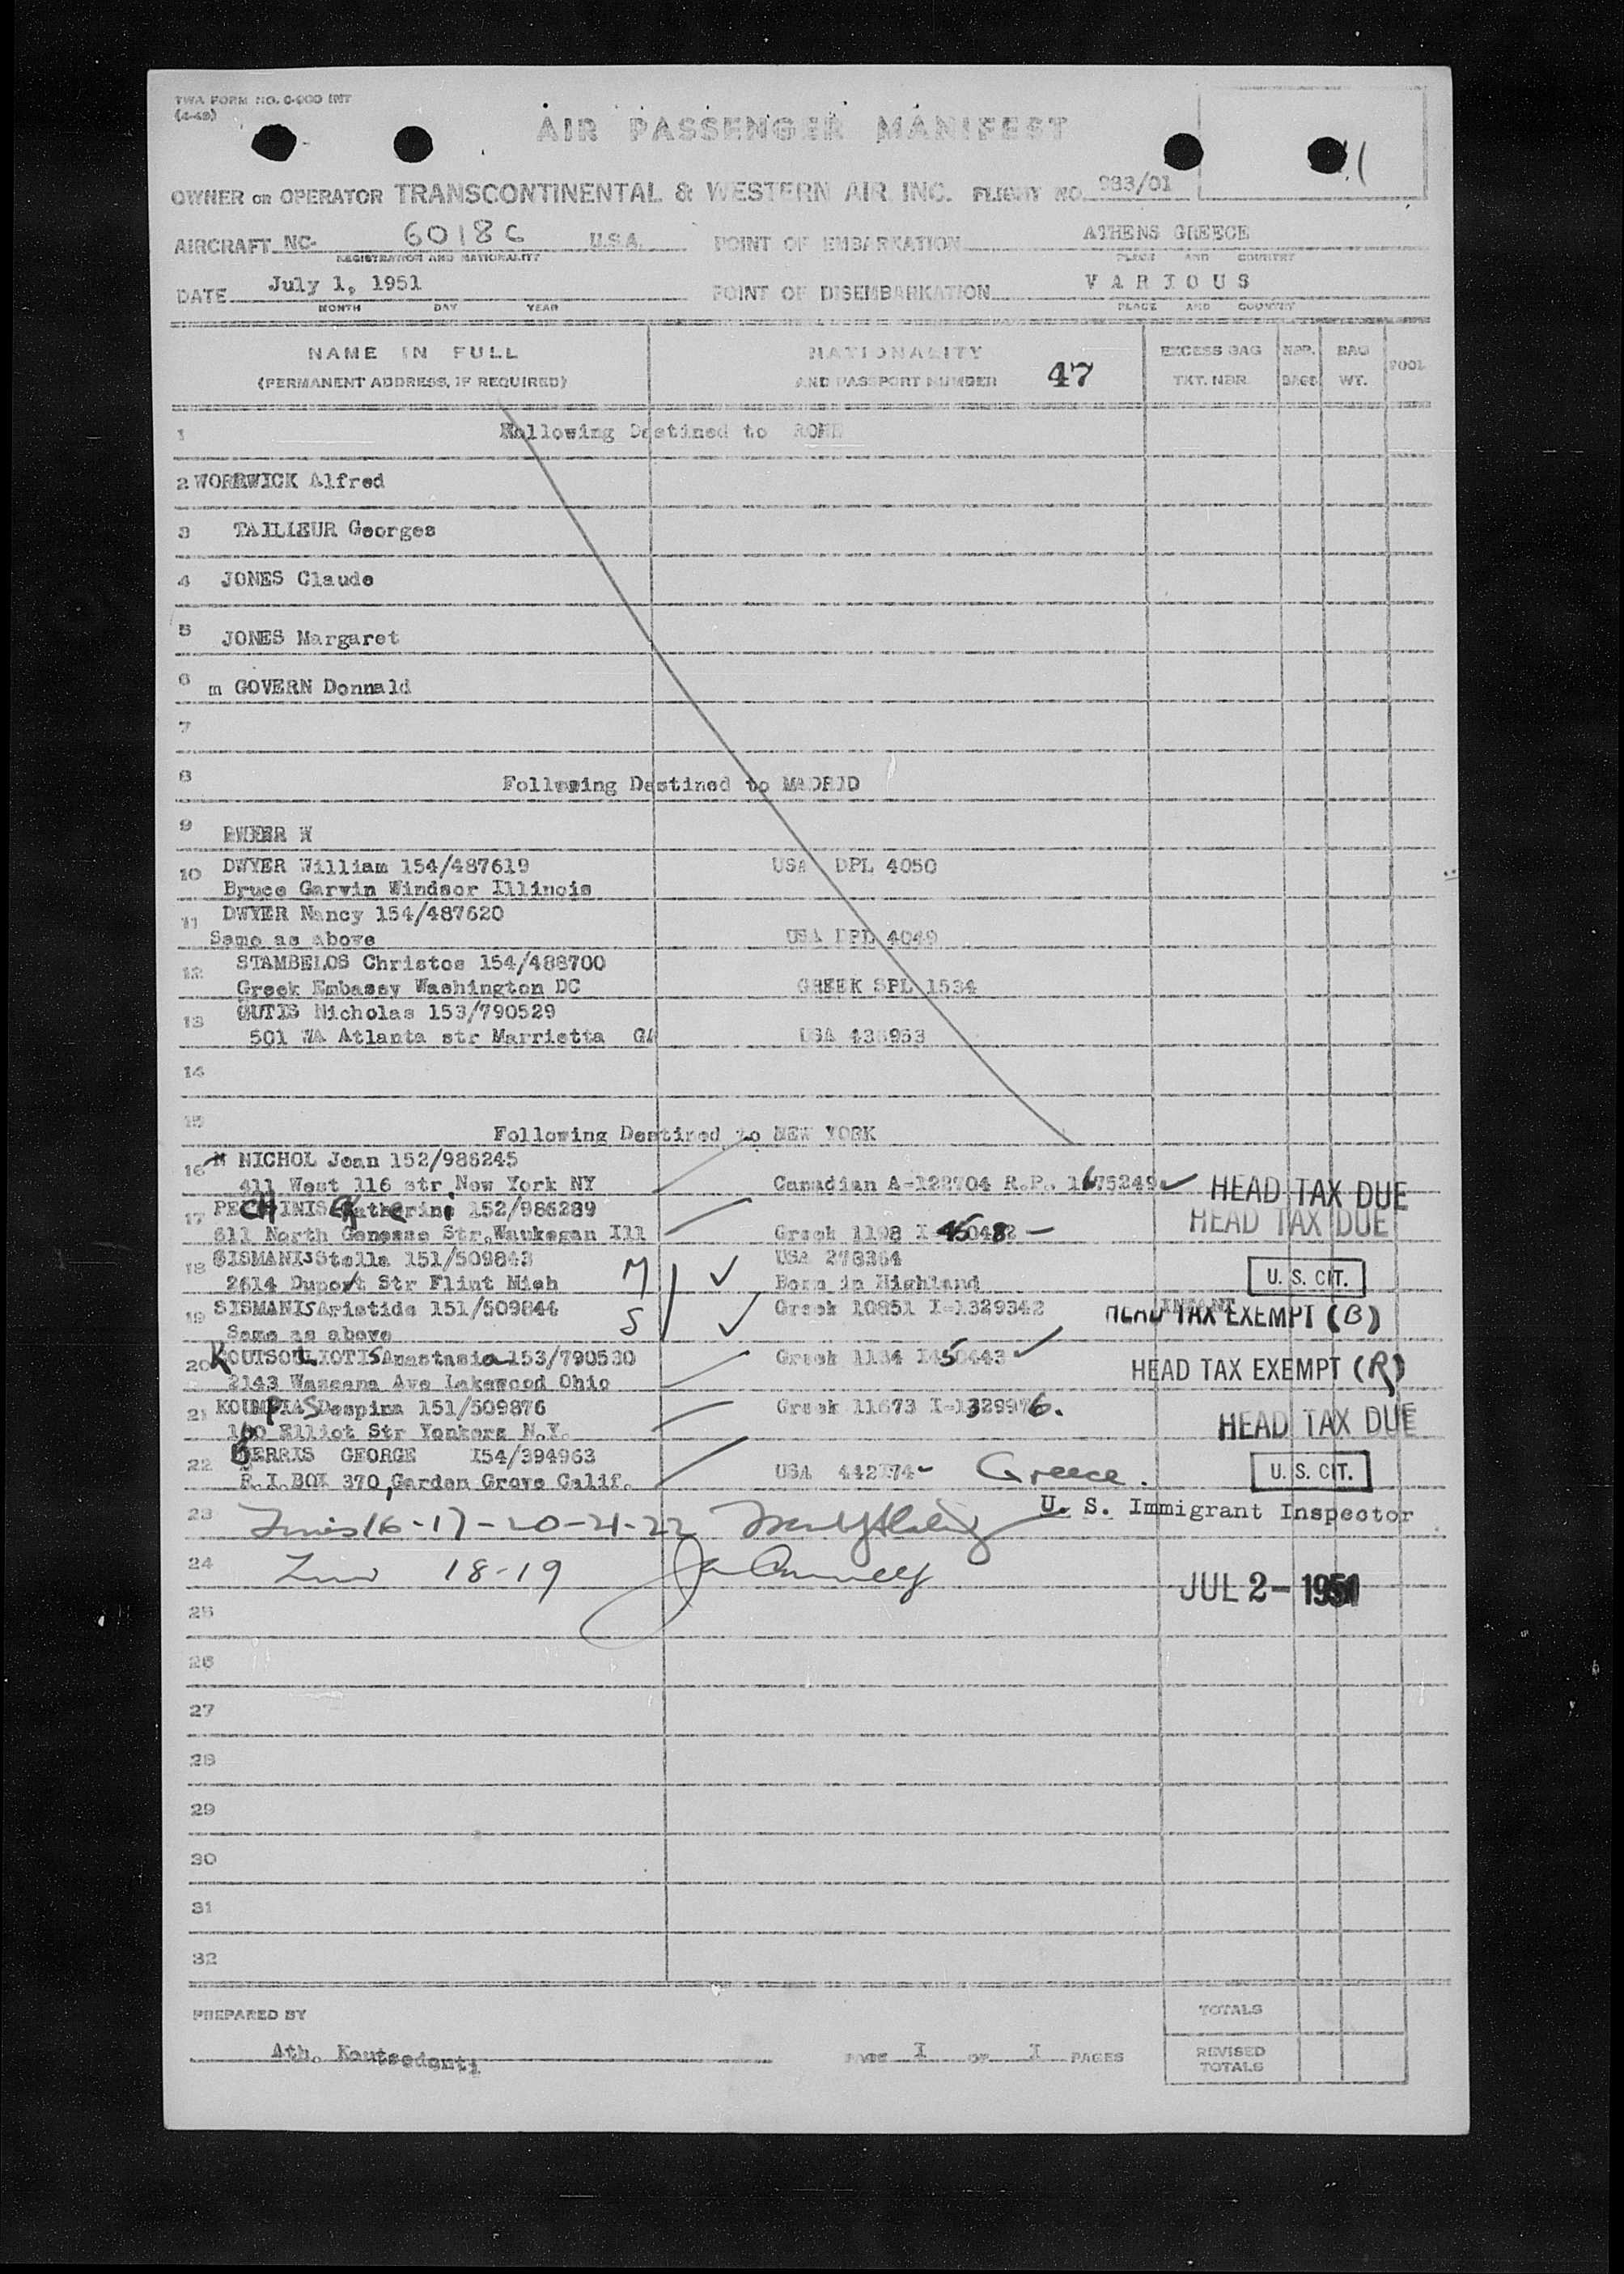 TWA FORM NO. O-900 INT
(4-49)
AIR PASSENGER MANIFEST
OWNER OR OPERATOR TRANSCONTINENTAL & WESTERN AIR, INC. FLIGHT NO. 933/01
AIRCRAFT NC- 6018C U.S.A. POINT OF EMBARKATION ATHENS GREECE
REGISTRATION AND NATIONALITY PLACE AND COUNTRY
DATE July 1, 1951 POINT OF DISEMBARKATION VARIOUS
MONTH DAY YEAR PLACE AND COUNTRY
NAME IN FULL NATIONALITY EXCESS BAG NBR. BAG POOL
(PERMANENT ADDRESS, IF REQUIRED) AND PASSPORT NUMBER 47 TKT. NBR. BAGS WT.
1 Following Destined to ROME
2 WORRWICK Alfred
3 TAILLEUR Georges
4 JONES Claude
5 JONES Margaret
6 m GOVERN Donnald
7
8 Following Destined to MADRID
9
10 DWYER William 154/487619 USA DPL 4050
Bruce Garvin Windsor Illinois
11 DWYER Nancy 154/487620
Same as above USA DPL 4049
12 STAMBELOS Christos 154/488700
Greek Embassy Washington DC GREEK SPL 1534
13 GUTIS Nicholas 153/790529
501 WA Atlanta str Marrietta GA USA
14
15 Following Destined to NEW YORK
16 M NICHOL Jean 152/986245
411 West 116 str New York NY Canadian A-122704 R.P. 1675249 HEAD TAX DUE
17 PECHINIS Katherine 152/986289 HEAD TAX DUE
611 North Genesse Str, Waukegan Ill Greek 1198 I-
18 SISMANIS Stella 151/509843 USA 278364
2614 Duport Str Flint Mich M Born in Highland U. S. CIT.
19 SISMANIS Aristide 151/509844 Greek 10851 I-1329342 INFANT HEAD TAX EXEMPT (B)
Same as above S
20 KOUTSOULIOTIS Anastasia 153/790530 Greek 1184 HEAD TAX EXEMPT (R)
2143 Wassena Ave Lakewood Ohio
21 KOUMPIAS Despina 151/509876 Greek 11673 I-1329976. HEAD TAX DUE
160 Elliot Str Yonkers N.Y.
22 BERRIS GEORGE I54/394963
R.I.BOX 370, Garden Grove Calif. USA Greece. U. S. CIT.
23 Lines 16-17-20-21-22 U. S. Immigrant Inspector
24 Line 18-19 JUL 2- 1951
25
26
27
28
29
30
31
32
PREPARED BY TOTALS
Ath. Koutsodonti PAGE I OF I PAGES REVISED TOTALS